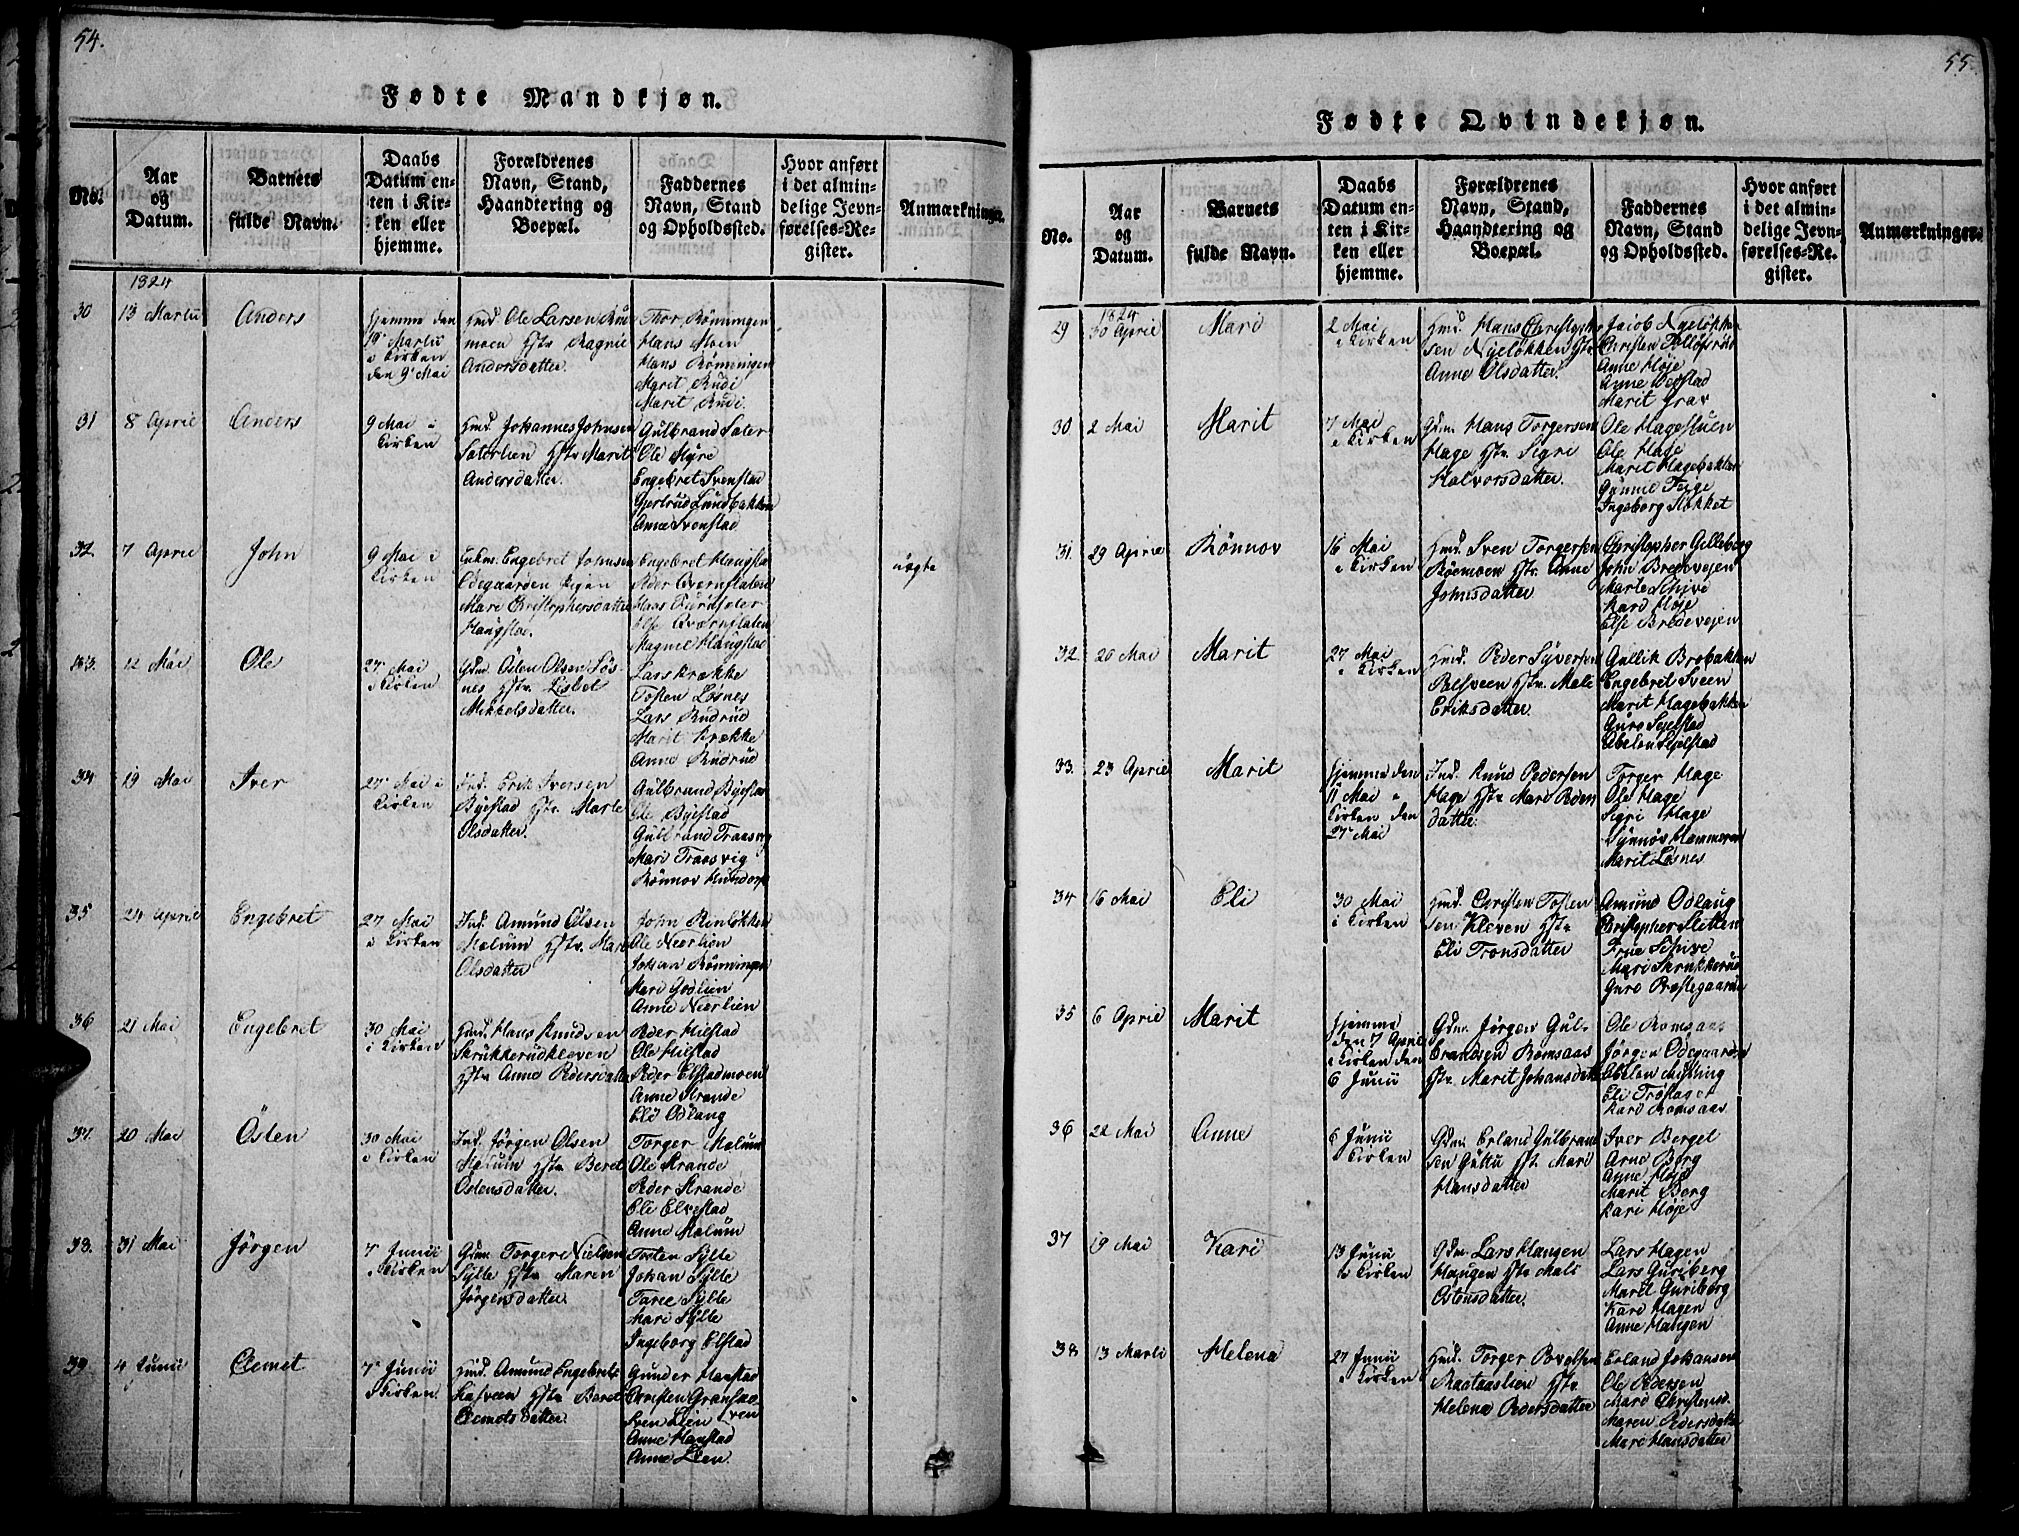 54.
Fødte Mandkjøn.
No.
Aar og Datum.
Barnets fulde Navn.
Daabs Datum enten i Kirken eller hjemme.
Forældrenes Navn, Stand, Haandtering og Boepæl.
Faddernes Navn, Stand og Opholdssted.
Hvor anført i det almindelige Jevnførelses-Register.
Anmærkninger.
1824
30
13 Martii
Anders
hjemme den
19 Martii
i Kirken
den 9 Mai
Hmd. Ole Larsen
moen Hstr Ragnil
Andersdatter.
Thor Rönningen
Hans Moen
Hans Rönningen
Marit Rudi
Marit Rudi.
31
8 April
Anders
9 Mai i
Kirken
Hmd. Johannes Johnsen
Hstr Marit
Andersdatter.
Gulbrand
Ole Myre
Engebret Svenstad
Gjertrud Lundbakken
Anne Svenstad
32
7 April
John
9 Mai i
Kirken
Engebret Johnsen
Ödegaarden Pigen
Mari Christophersdatter
Haugstae.
Engebret Haugstae
Peder Qvernflaten
Hans
Else Qværnflaten
Magnil Haugstae
uægte
33.
12 Mai
Ole
27 Mai
i Kirken
Gdm. Östen Olsen Løs-
nes Hstr. Lisbet
Mikkelsdatter.
Lars Krække
Tosten Løsnes
Lars Rudrud
Marit Krække
Anne Rudrud
34
19 Mai
Iver
27 Mai i
Kirken
Ind. Erik Iversen
Byestad Hstr Marte
Olsdatter.
Gulbrand Byestad
Ole Byestad
Gulbrand Traasvig
Mari Traasvig
Rönnov Hundorp
35
24 April
Engebret
27 Mai
i Kirken
Ind. Amund Olsen
Malum Hstr. Mari
Olsdatter
John Renlökken
Ole Neerlien
Johan Rönningen
Mari Godlien
Anne Neerlien
36
21 Mai
Engebret
30 Mai
i Kirken
Hmd. Hans Knudsen
Skrukkerudkleven
Hstr Anne Pedersdatter
Peder Hilstad
Ole Hilstad
Peder Elstadmoen
Anne Strande
Eli Odlaug
37.
20 Mai
Östen
30 Mai
i Kirken
Ind. Jörgen Olsen
Malum Hstr Beret
Östensdatter.
Torger Malum
Ole Strande
Peder Strande
Eli Elvestad
Anne Malum
38.
31 Mai
Jörgen
7 Junii
i Kirken
Gdm. Torger Nielsen
Sylte Hstr Maren
Jörgensdatter.
Tosten Sylte
Johan Sylte
Tarie Sylte
Mari Sylte
Ingeborg Elstad
39
4 Junii
Clemet
7 Junii
i Kirken
Hmd. Amund Engebrets.
Hstr Beret
Clemetsdatter
Gunder Haustad
Christen
Sven Lien
Anne Haustad
Anne Lien.
55.
Fødte Qvindekjøn.
No.
Aar og Datum.
Barnets fulde Navn.
Daabs Datum enten i Kirken eller hjemme.
Forældrenes Navn, Stand, Haandtering og Boepæl.
Faddernes Navn, Stand og Opholdssted.
Hvor anført i det almindelige Jevnførelses-Register.
Anmærkninger.
1824
29
30 April
Mari
2 Mai
i Kirken
Hmd. Hans Christoph-
sen Nyeløkken Hstr
Anne Olsdatter.
Jacob Nyeløkken
Christen
Anne Høje
Anne
Marit Grav
30
2 Mai
Marit
7 Mai
i Kirken
Gdm. Hans Torgersen
Hage Hstr. Sigri
Halvorsdatter.
Ole Hagestuen
Ole Hage
Marit Hagebakken
Feige
Ingeborg Stokket
31.
29 April
Rönnov
16 Mai
i Kirken
Hmd. Sven Torgersen
Röemoen Hstr. Anne
Johnsdatter
Christopher Gilleberg
John Bredevejen
Marte Skive
Kari Høje
Else Bredevejen
32
20 Mai
Marit
27 Mai
i Kirken
Hmd. Peder Syversen
Hstr. Mali
Eriksdatter.
Gullik Brobakken
Engebret Sveen
Marit Hagebakken
Guro Sejelstad
Abelon Sejelstad
33.
23 April
Marit
hjemme den
11 Mai i
Kirken den
27 Mai
Ind. Knud Pedersen
Hage Hstr Mari
datter.
Torger Hage
Ole Hage
Sigri Hage
Synnöv Hammeren
Marit Løsnes
34
16 Mai
Eli
30 Mai
i Kirken
Hmd. Christen Tosten-
sen Kleven Hstr
Eli Tronsdatter
Amund Odlaug
Christopher Sletten
Skive
Mari Skrukkerud
Guro Prestegaarden
35
6 April
Marit
hjemme
den 7 April
i Kirken den
6 Junii
Gdm. Jörgen Gul-
brandsen Romsaas
Hstr. Marit Johansdatter
Ole Romsaas
Jörgen Ödegaarden
Abelon
Eli
Kari Romsaas
36
22 Mai
Anne
6 Junii
i Kirken
Gdm. Erland Gulbrand-
sen Hstr. Mari
Hansdatter
Iver Berget
Arne Berg
Anne Høje
Marit Berg
Kari Høje
37
19 Mai
Kari
13 Junii
i Kirken
Gdm. Lars
Haugen Hstr Mali
Östensdatter.
Lars Hagen
Lars Guriberg
Marit Guriberg
Kari Hagen
Anne Haugen
38
13 Martii
Helena
27 Junii
i Kirken
Hmd. Torger Povelsen
Raataaslien Hstr
Helena Pedersdatter
Erland Johansen
Ole Pedersen
Mari Christensd.
Maren Pedersdatter
Mari Hansdatter